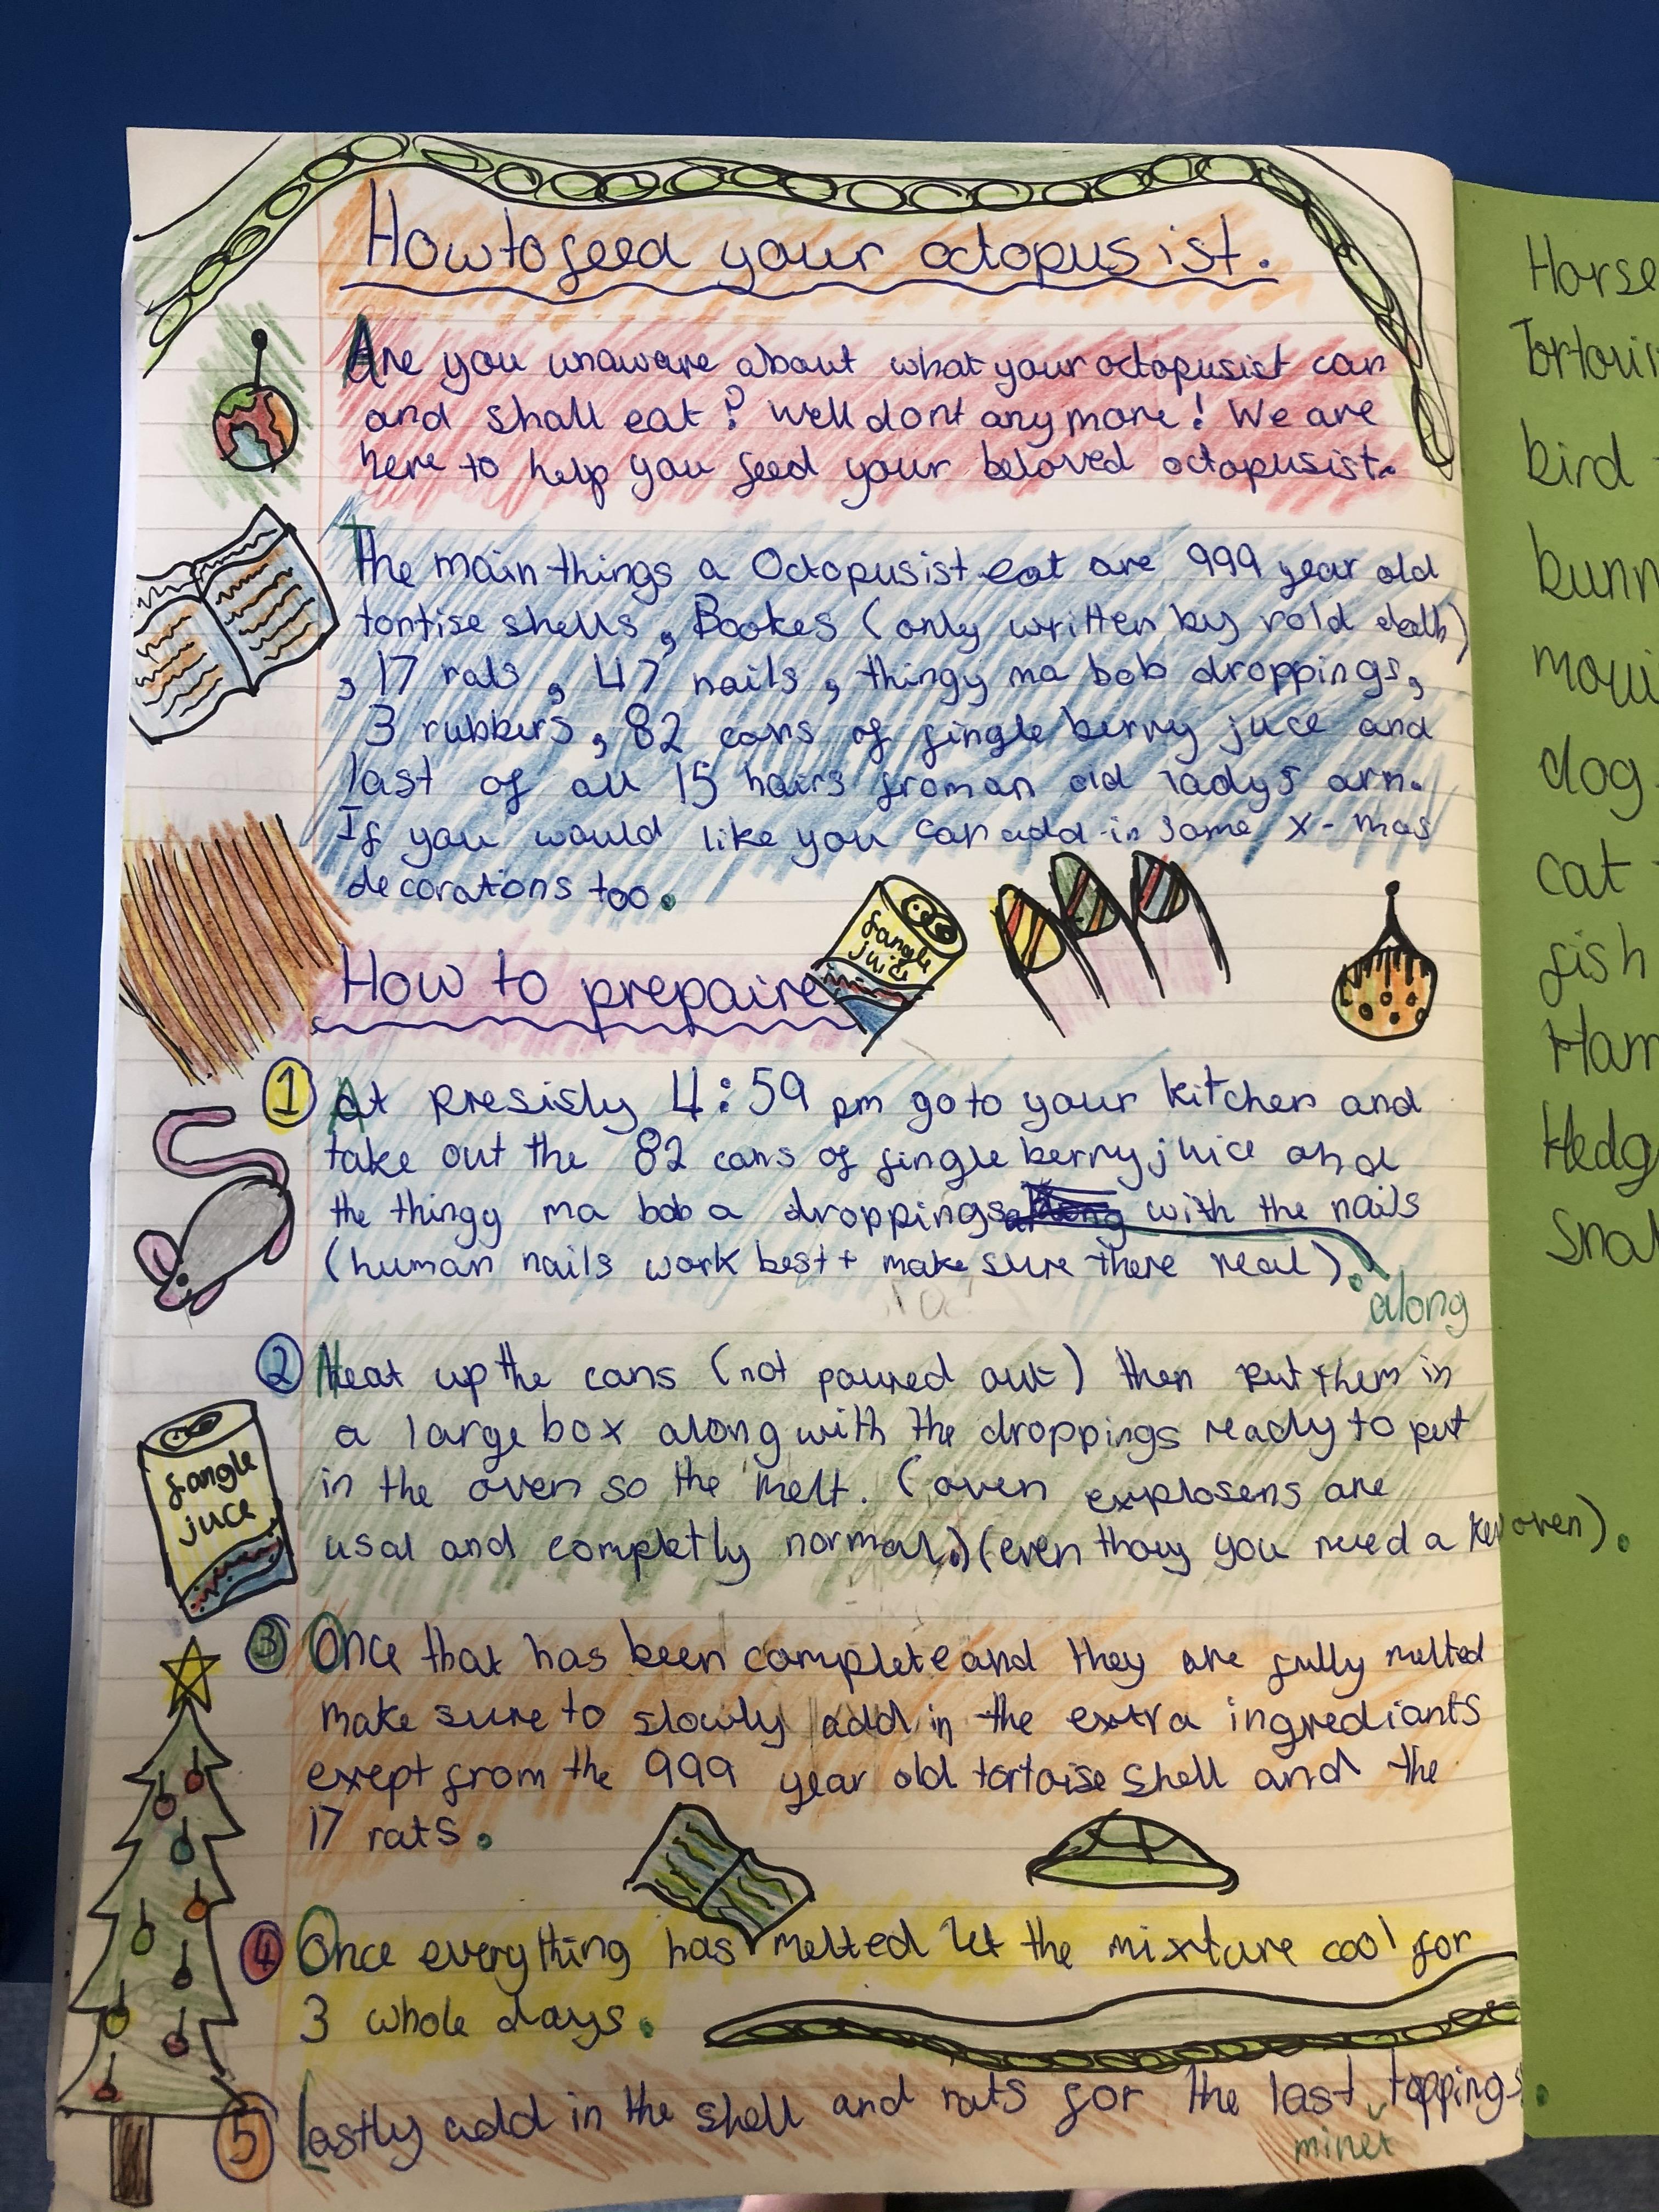 How to feed your octopusist.
Are you unaware about what your octopusist can
and shall eat? Well dont anymore! We are
here to help you feed your beloved octopusist.
The main things a Octopusist eat are 999 year old
tortise shells, Bookes (only written by rold dalh)
, 17 rats, 47 nails, thingy ma bob droppings,
3 rubbers, 82 cans of fingle berry juce and
last of all 15 hairs from an old ladys arm.
If you would like you can add in some x-mas
decorations too.
fangle
juice
How to prepaire
1 At presisly 4:59 pm go to your kitchen and
take out the 82 cans of fingle berry juice and
the thingy ma bob a droppings with the nails
(human nails work best + make sure there real).
along
2 Heat up the cans (not poured out) then put them in
a large box along with the droppings ready to put
in the oven so the melt. (oven explosens are
usal and completly normal.) (even thouy you need a new oven).
fangle
juce
3 Once that has been complete and they are fully melted
make sure to slowly add in the extra ingrediants
exept from the 999 year old tortoise shell and the
17 rats.
4 Once everything has melted let the mixture cool for
3 whole days.
5 Lastly add in the shell and rats for the last toppings.
minet
Horse
bird
dog
cat
fish